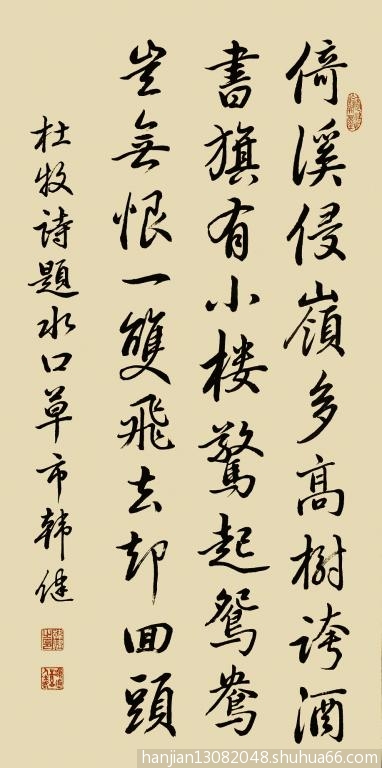 倚溪侵嶺多高樹誇酒
書旗有小楼驚起鴛鴦
豈無恨一雙飛去却回頭
杜牧詩題水口草市韩健
hanjian13082048.shuhua66.com